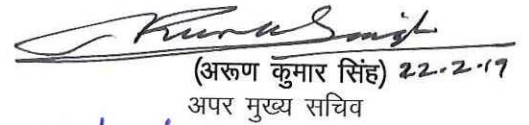 (अरूण कुमार सिंह) 22-2-19
अपर मुख्य सचिव